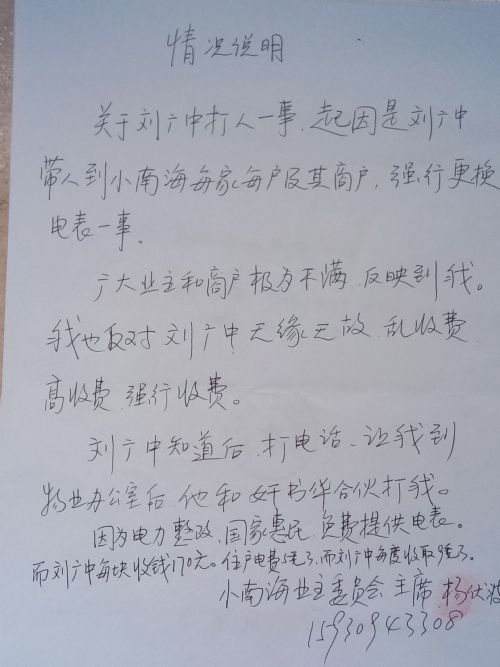 情况说明
关于刘广中打人一事.起因是刘广中
带人到小南海每家每户及其商户.强行更换
电表一事。
广大业主和商户极为不满.反映到我。
我也反对刘广中无缘无故.乱收费.
高收费.强行收费。
刘广中知道后.打电话.让我到
物业办公室后.他和 书华合伙打我。
因为电力整改.国家惠民.免费提供电表。
而刘广中每块收钱170元。住户电费5毛3而刘广中每度收取9毛3。
小南海业主委员会主席.杨伏波
15930943308